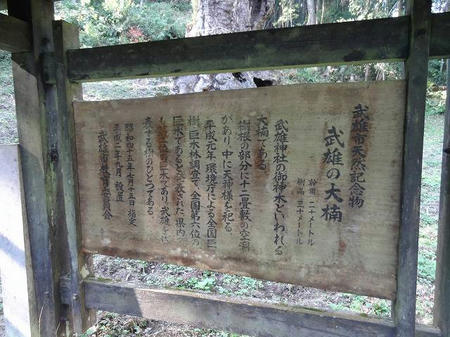 武雄市天然記念物
武雄の大楠
幹周 二十メートル
樹高 三十メートル
武雄神社の御神木といわれる
大楠である。
樹根の部分に十二畳敷の空洞
があり、中に天神様を祀る。
平成元年環境庁による全国巨
樹・巨木林調査で、全国第六位の
巨木であると公表された。県内
昭和四十五年七月十五日 指定
武雄市教育委員会